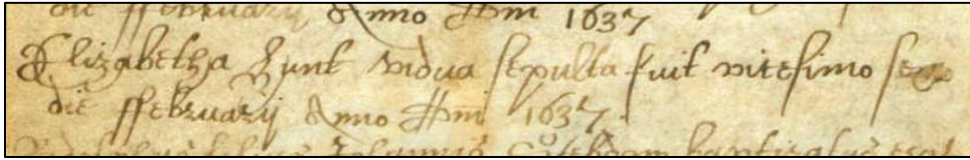 die ffebruarij Anno Dm 1637
Elizabetha Hunt vidua sepulta fuit vicesimo
die ffebruarij Anno Dm 1637
baptizatus erat